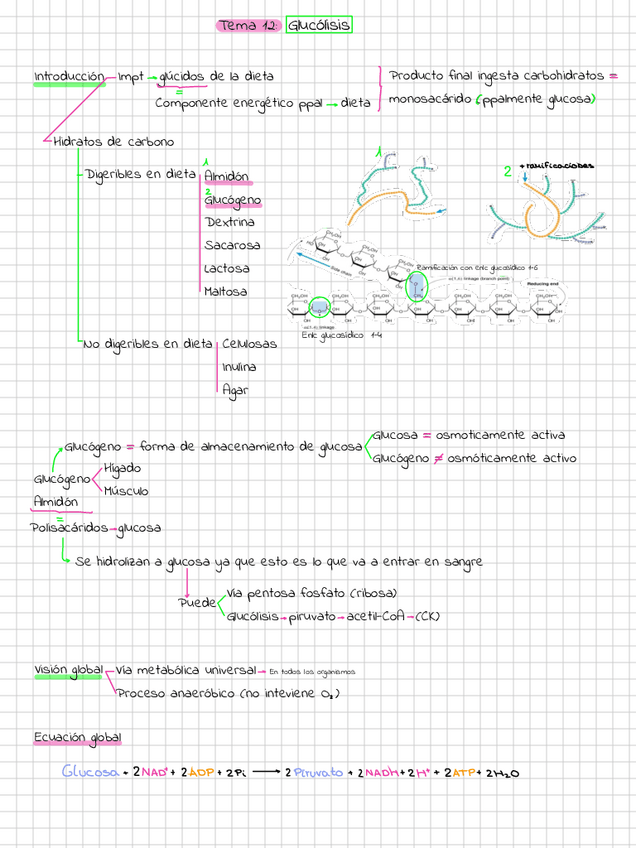 Tema 12: Glucólisis
Introducción Impt → glúcidos de la dieta
=
Componente energético ppal → dieta
Producto final ingesta carbohidratos =
monosacárido (ppalmente glucosa)
Hidratos de carbono
Digeribles en dieta
1
Almidón
2
Glucógeno
Dextrina
Sacarosa
Lactosa
Maltosa
1
2
+ ramificaciones
Side chain
Ramificación con Enlc glucosídico 1-6
α(1,6) linkage (branch point)
Reducing end
α(1,4) linkage
Enlc glucosídico 1-4
No digeribles en dieta
Celulosas
Inulina
Agar
Glucógeno = forma de almacenamiento de glucosa
Glucosa = osmoticamente activa
Glucógeno ≠ osmóticamente activo
Glucógeno
Hígado
Músculo
Almidón
=
Polisacáridos → glucosa
Se hidrolizan a glucosa ya que esto es lo que va a entrar en sangre
Puede
Vía pentosa fosfato (ribosa)
Glucólisis → piruvato → acetil-CoA → (CK)
Visión global
Vía metabólica universal → En todos los organismos
Proceso anaeróbico (no inteviene O₂)
Ecuación global
Glucosa + 2NAD⁺ + 2ADP + 2Pi → 2 Piruvato + 2NADH + 2H⁺ + 2ATP + 2H₂O